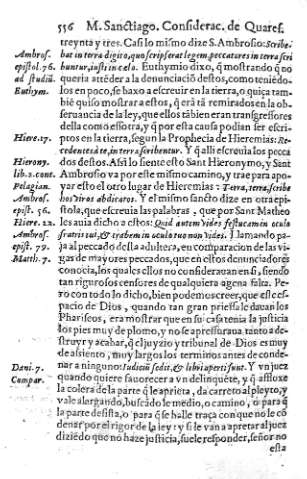 556 M. Sanctiago. Considerac. de Quares.
treynta y tres. Casi lo mismo dize S. Ambrosio: Scribe-
Ambros. bat in terra digito, quo scripserat legem peccatores in terra scri
epistol. 76. buntur, iusti in cælo. Euthymio dixo, q̃ mostrando q̃ no
ad studiũ. queria attẽder a la denunciaciõ destos, como teniẽdo-
Euthym. los en poco, se baxo a escreuir en la tierra, o quiça tam-
biẽ quiso mostrar a estos, q̃ erã tã remirados en la ob-
seruancia de la ley, que ellos tãbien eran transgressores
della como essotra, y q̃ por esta causa podian ser escri-
Hiere. 17. ptos en la tierra, segun la Prophecia de Hieremias: Re-
cedentes à te, in terra scribentur. Y q̃ alli escreuia los pecca
Hierony. dos destos. Assi lo siente esto Sant Hieronymo, y Sant
lib. 2. cont. Ambrosio va por este mismo camino, y trae para apo-
Pelagian. yar esto el otro lugar de Hieremias: Terra, terra, scribe
Ambros. hos viros abdicatos. Y el mismo sancto dize en otra epi-
epist. 56. stola, que escreuia las palabras, que por Sant Matheo
Hiere. 22. les auia dicho a estos: Quid autem vides festucam in oculo
Ambros. fratris tui, & trabem in oculo tuo non vides. Llamando pa-
epist. 79. ja al peccado desta adultera, en comparacion de las vi-
Matth. 7. gas de mayores peccados, que en estos denunciadores
conocia, los quales ellos no considerauan en si, siendo
tan rigurosos censores de qualquiera agena falta. Pe-
ro con todo lo dicho, bien podemos creer, que este es-
pacio de Dios, quando tan gran priessa le dauan los
Phariseos, era mostrar que en su casa tenia la justicia
los pies muy de plomo, y no se apressuraua tanto a de-
struyr y acabar, q̃ el juyzio y tribunal de Dios es muy
de assiento, muy largos los terminos antes de conde-
Dani. 7. nar a ninguno: Iudicium sedit, & libri aperti sunt. Y vn juez
Compar. quando quiere fauorecer a vn delinquẽte, y q̃ affloxe
la colera de la parte q̃ le aprieta, da carreto al pleyto, y
vale alargando, buscãdo le medio, o camino, o para q̃
la parte desista, o para q̃ se halle traça con que no le cõ
denar por el rigor de la ley: y si le van a apretar al juez
diziẽdo que no haze justicia, suele responder, señor no
esta